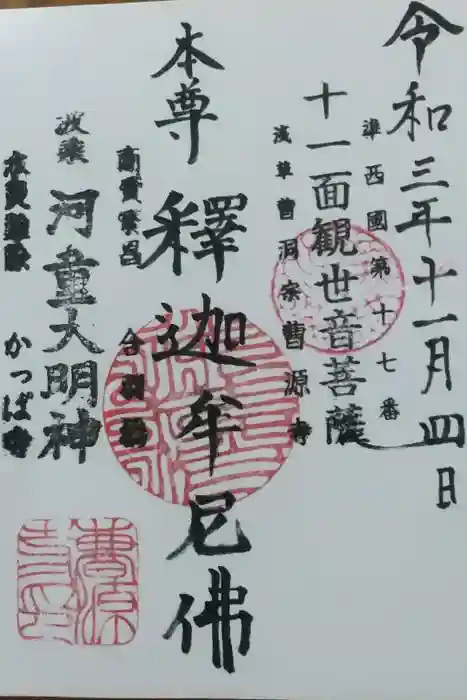 令和三年十一月四日
準西國第十七番
十一面観世音菩薩
浅草曹洞宗曹源寺
本尊 釋迦牟尼佛
商賣繁昌 合羽橋
波乗 河童大明神
かっぱ寺
曹源